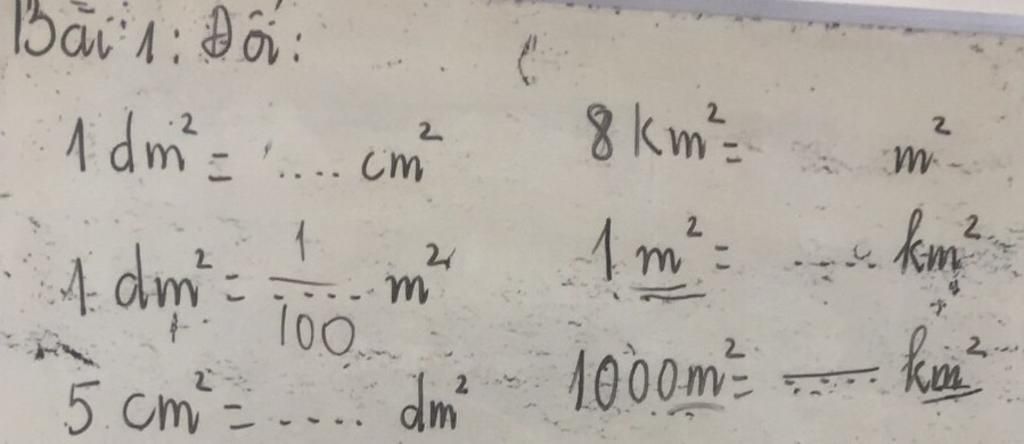 Bài 1: Đổi:
1 dm² = .... cm²
8 km² = m²
1 dm² = 1/100 m²
1 m² = ..... km²
5 cm² = .... dm²
1000 m² = ...... km²